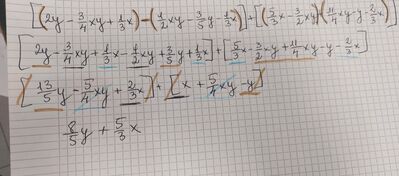 [(2y - 3/4xy + 1/3x) - (1/2xy - 3/5y - 1/3x)] + [(5/3x - 3/2xy)(11/4xy - y - 2/3x)]
[2y - 3/4xy + 1/3x - 1/2xy + 3/5y + 1/3x] + [5/3x - 3/2xy + 11/4xy - y - 2/3x]
[(13/5y - 5/4xy + 2/3x)] + [(x + 5/4xy - y)]
8/5y + 5/3x